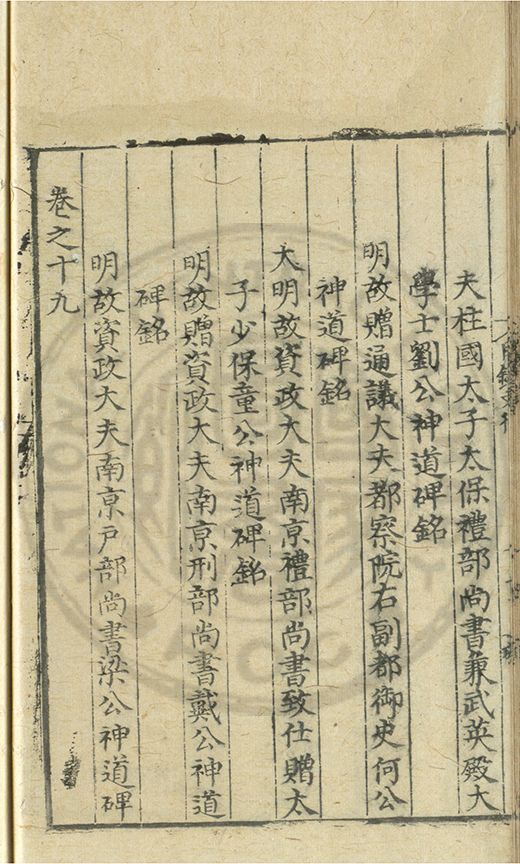 夫柱國太子太保禮部尚書兼武英殿大
學士劉公神道碑銘
明故贈通議大夫都察院右副都御史何公
神道碑銘
大明故資政大夫南京禮部尚書致仕贈太
子少保童公神道碑銘
明故贈資政大夫南京刑部尚書戴公神道
碑銘
明故資政大夫南京戶部尚書梁公神道碑
卷之十九